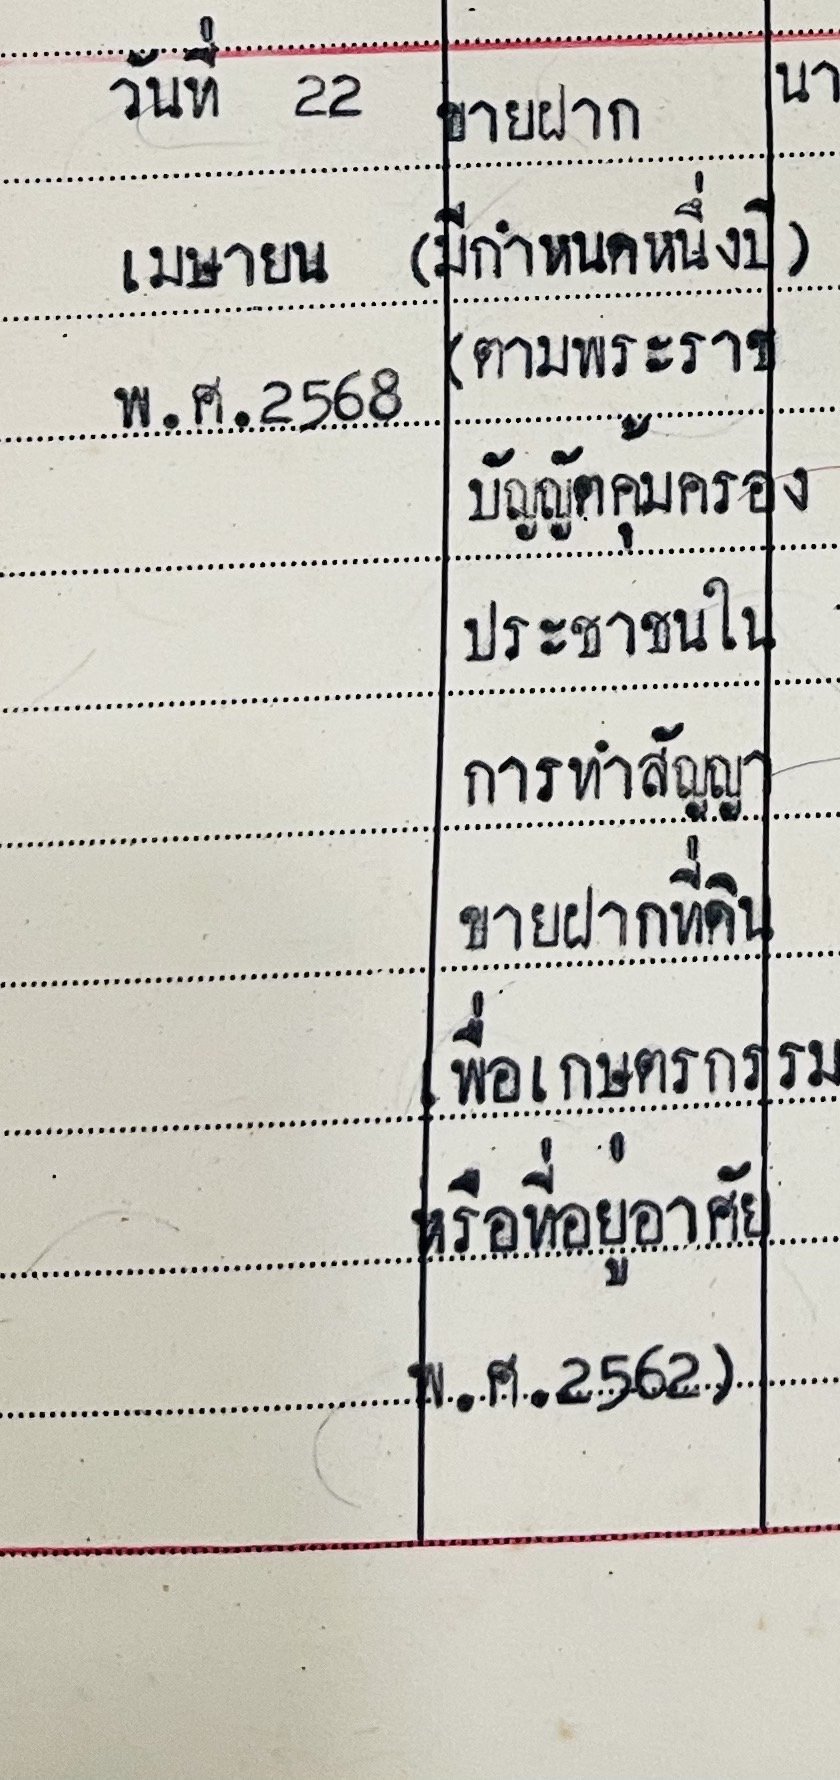 วันที่ 22
เมษายน
พ.ศ.2568
ขายฝาก
(มีกำหนดหนึ่งปี)
(ตามพระราช
บัญญัตคุ้มครอง
ประชาชนใน
การทำสัญญา
ขายฝากที่ดิน
เพื่อเกษตรกรรม
หรือที่อยู่อาศัย
พ.ศ.2562)
นา